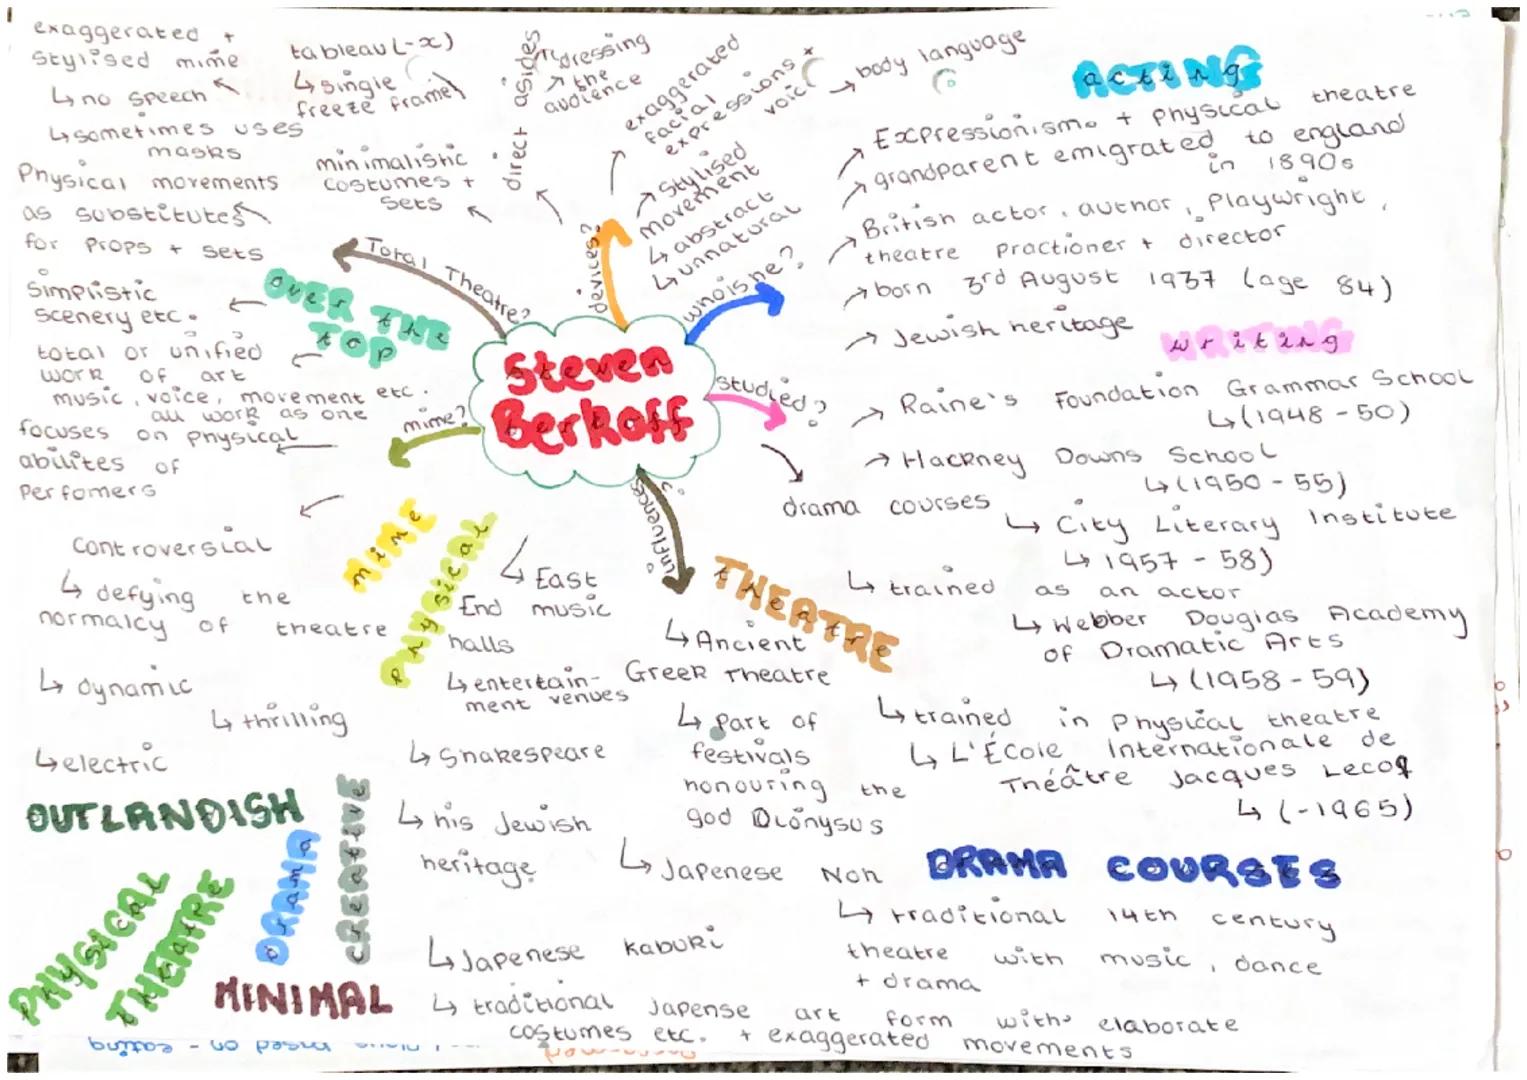 exaggerated +
stylised mime
↳ no speech
↳ sometimes uses
masks
tableau (-x)
↳ single
freeze frame)
direct asides
addressing
the
audience
exaggerated
facial
expressions +
voice
→ body language
ACTING
Physical movements
as substitutes
for props + sets
minimalistic
costumes +
sets
→ stylised
movement
↳ abstract
↳ unnatural
→ Expressionism + physical theatre
→ grandparent emigrated to england
in 1890s
→ British actor, author, playwright,
theatre practioner + director
→ born 3rd August 1937 (age 84)
→ Jewish heritage
WRITING
Total Theatre?
devices?
who is he?
simplistic
scenery etc.
OVER THE
TOP
total or unified
work of art
music, voice, movement etc.
all work as one
focuses on physical
abilites of
perfomers
Steven
Berkoff
mime?
studied?
influences?
→ Raine's Foundation Grammar School
↳ (1948 - 50)
→ Hackney Downs School
↳ (1950 - 55)
drama courses
↳ City Literary Institute
↳ 1957 - 58)
↳ trained as an actor
↳ Webber Douglas Academy
of Dramatic Arts
↳ (1958 - 59)
↳ trained in physical theatre
↳ L'École Internationale de
Théâtre Jacques Lecoq
↳ (-1965)
controversial
↳ defying the
normalcy of theatre
↳ dynamic
↳ thrilling
↳ electric
MIME
PHYSICAL
THEATRE
↳ East
End music
halls
↳ entertain-
ment venues
↳ Shakespeare
↳ his Jewish
heritage
↳ Ancient
Greek Theatre
↳ part of
festivals
honouring the
god Dionysus
↳ Japenese Noh
DRAMA COURSES
↳ traditional 14th century
theatre with music, dance
+ drama
↳ Japenese kabuki
↳ traditional Japense art form with elaborate
costumes etc. + exaggerated movements
OUTLANDISH
DRAMA
CREATIVE
PHYSICAL
THEATRE
MINIMAL